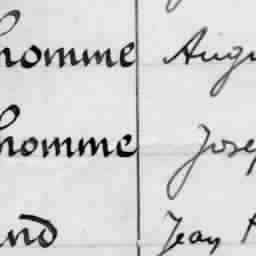 homme Augu
homme Jose
and Jean